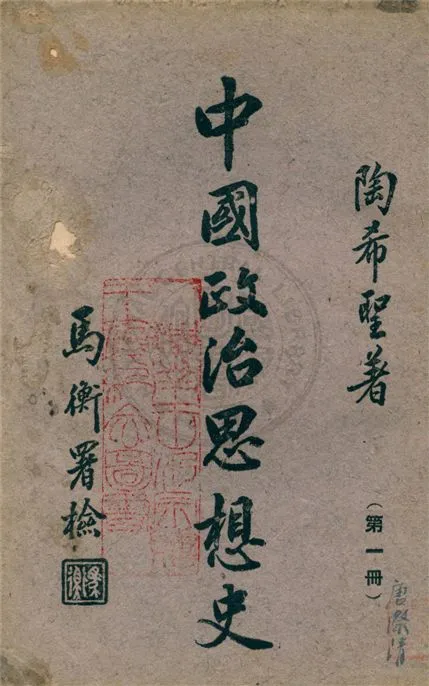 陶希聖著
（第一冊）
中國政治思想史
馬衡署檢